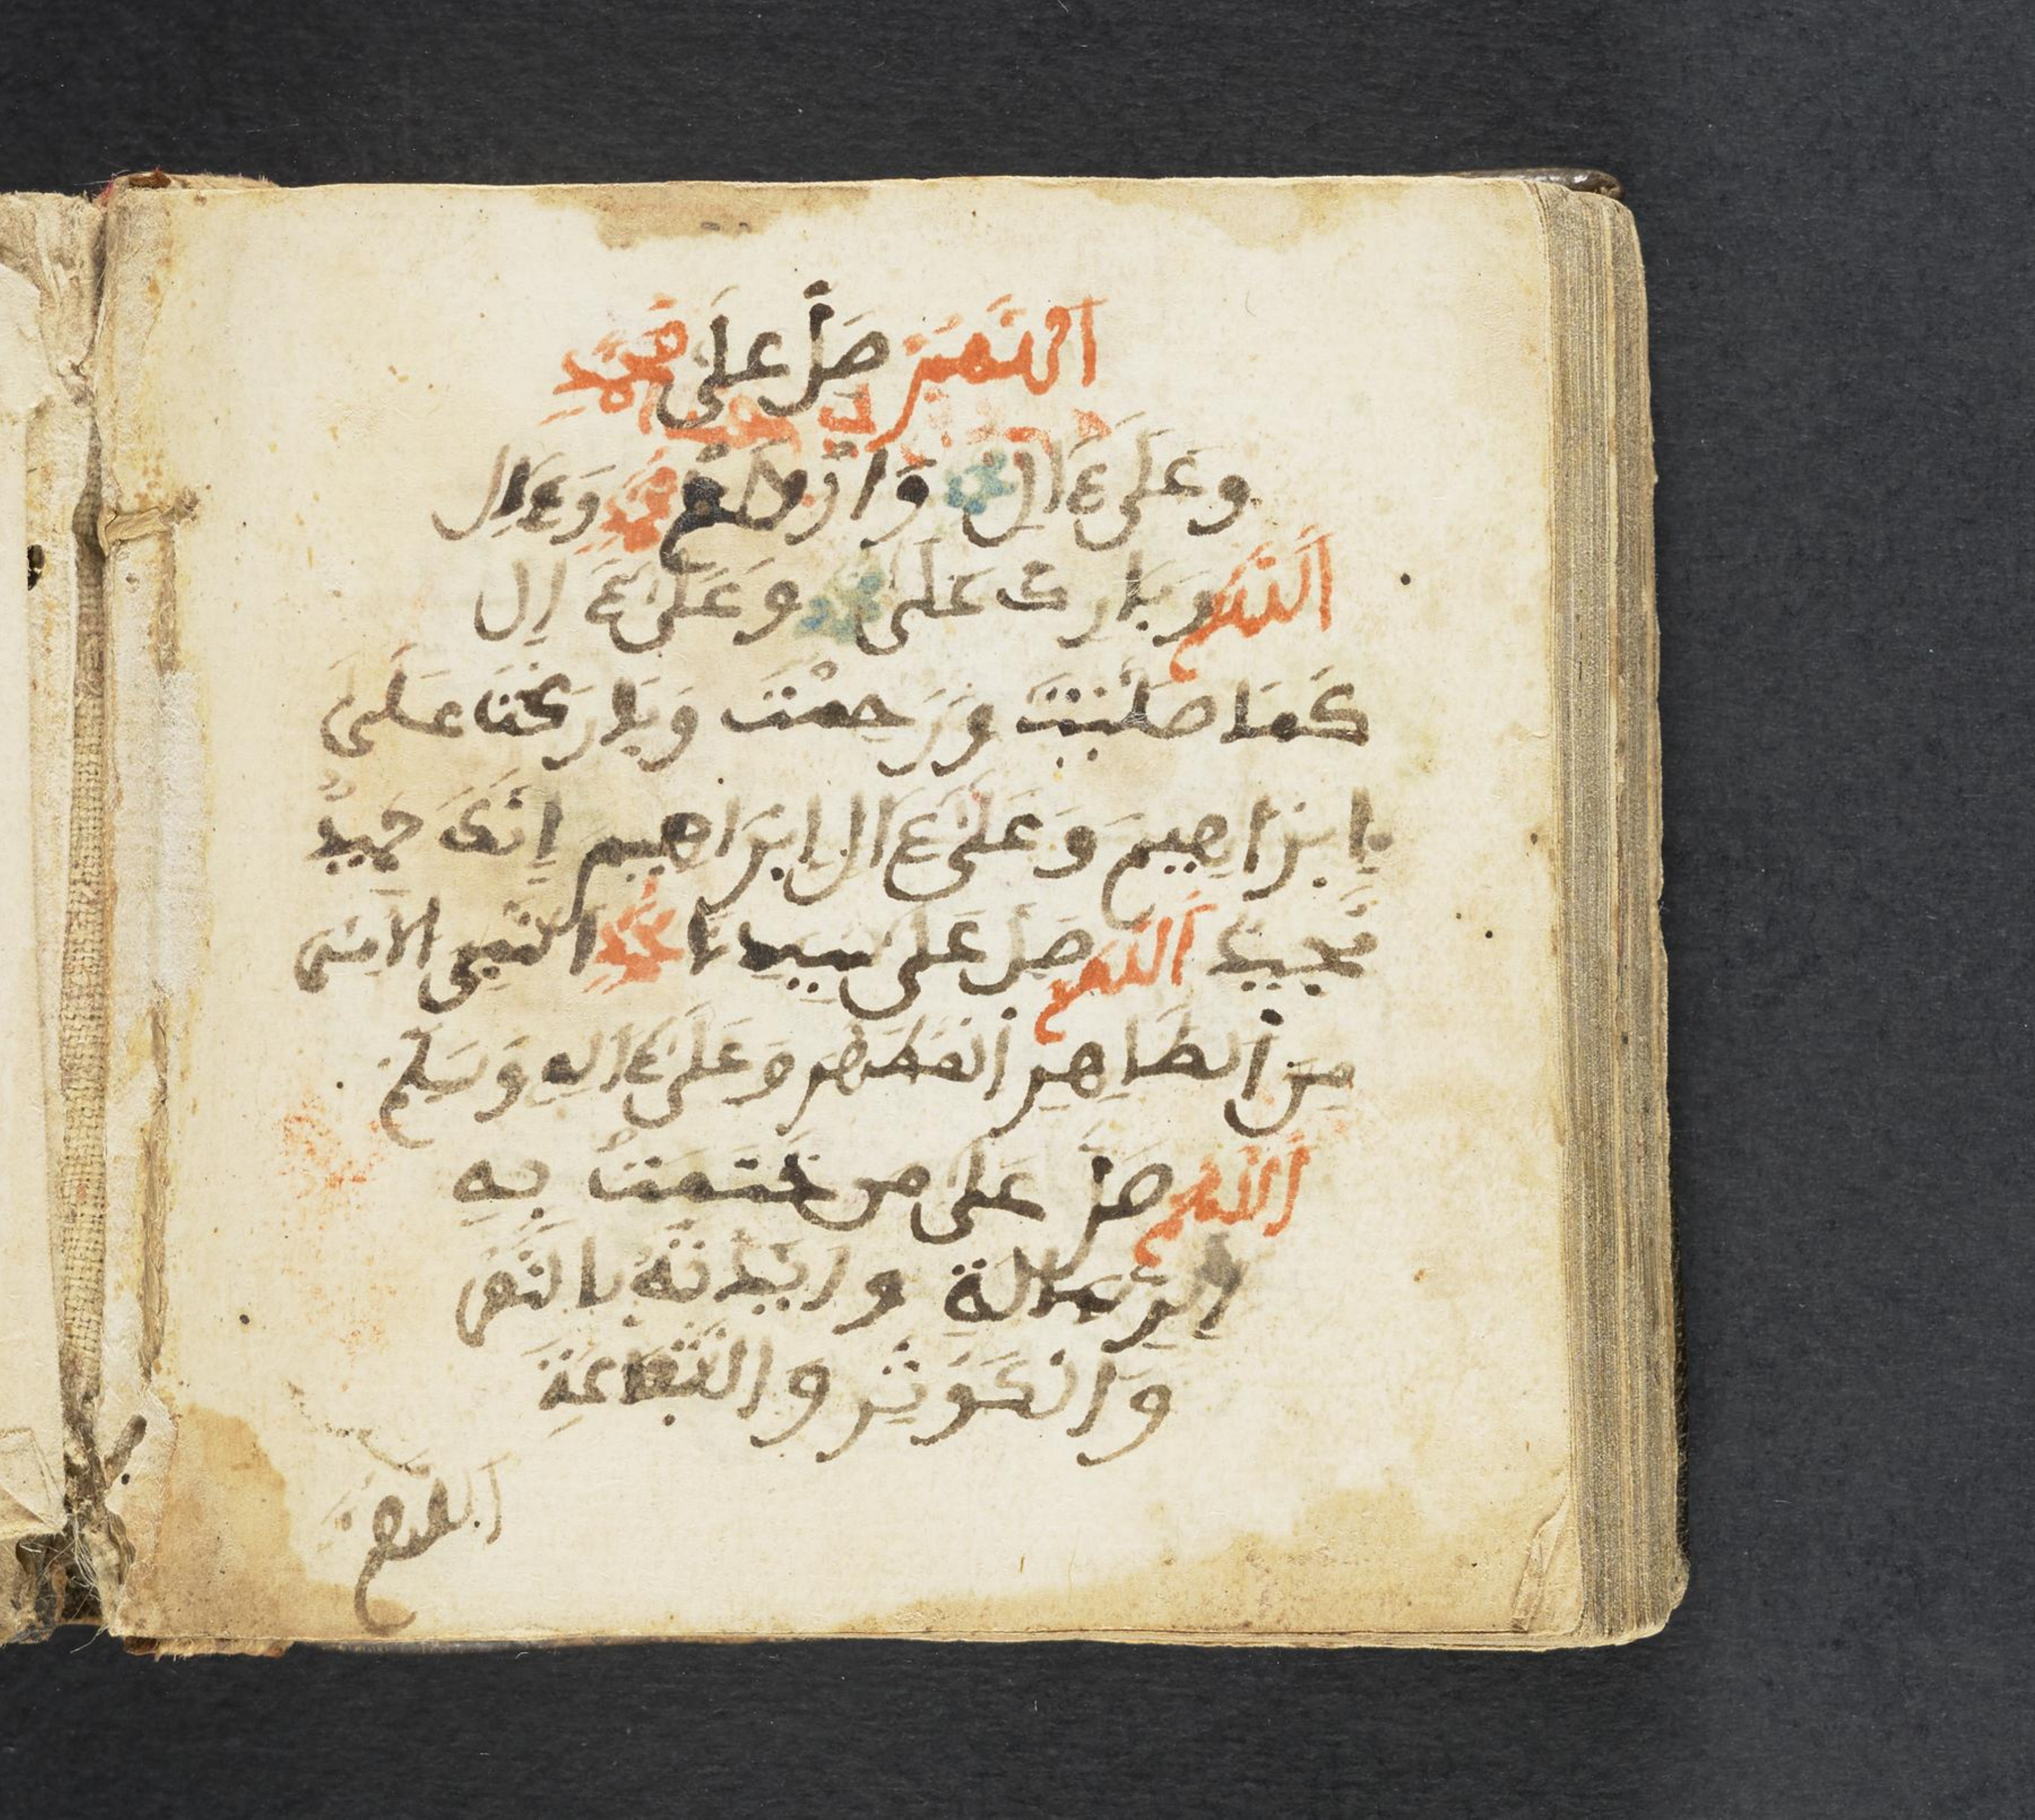 اللهم صل على محمد
وعلى ءال محمد وارحم محمد وءال
اللهم وبارك على محمد وعلى ءال
كما صليت ورحمت وباركت على
إبراهيم وعلى ءال إبراهيم إنك حميد
مجيد اللهم صل على سيدنا محمد النبي الامي
من الطاهر المطهر وعلى ءاله وسلم
اللهم صل على من ختمت به
الرسالة وايدته بالنصر
والكوثر والشفاعة
اللهم